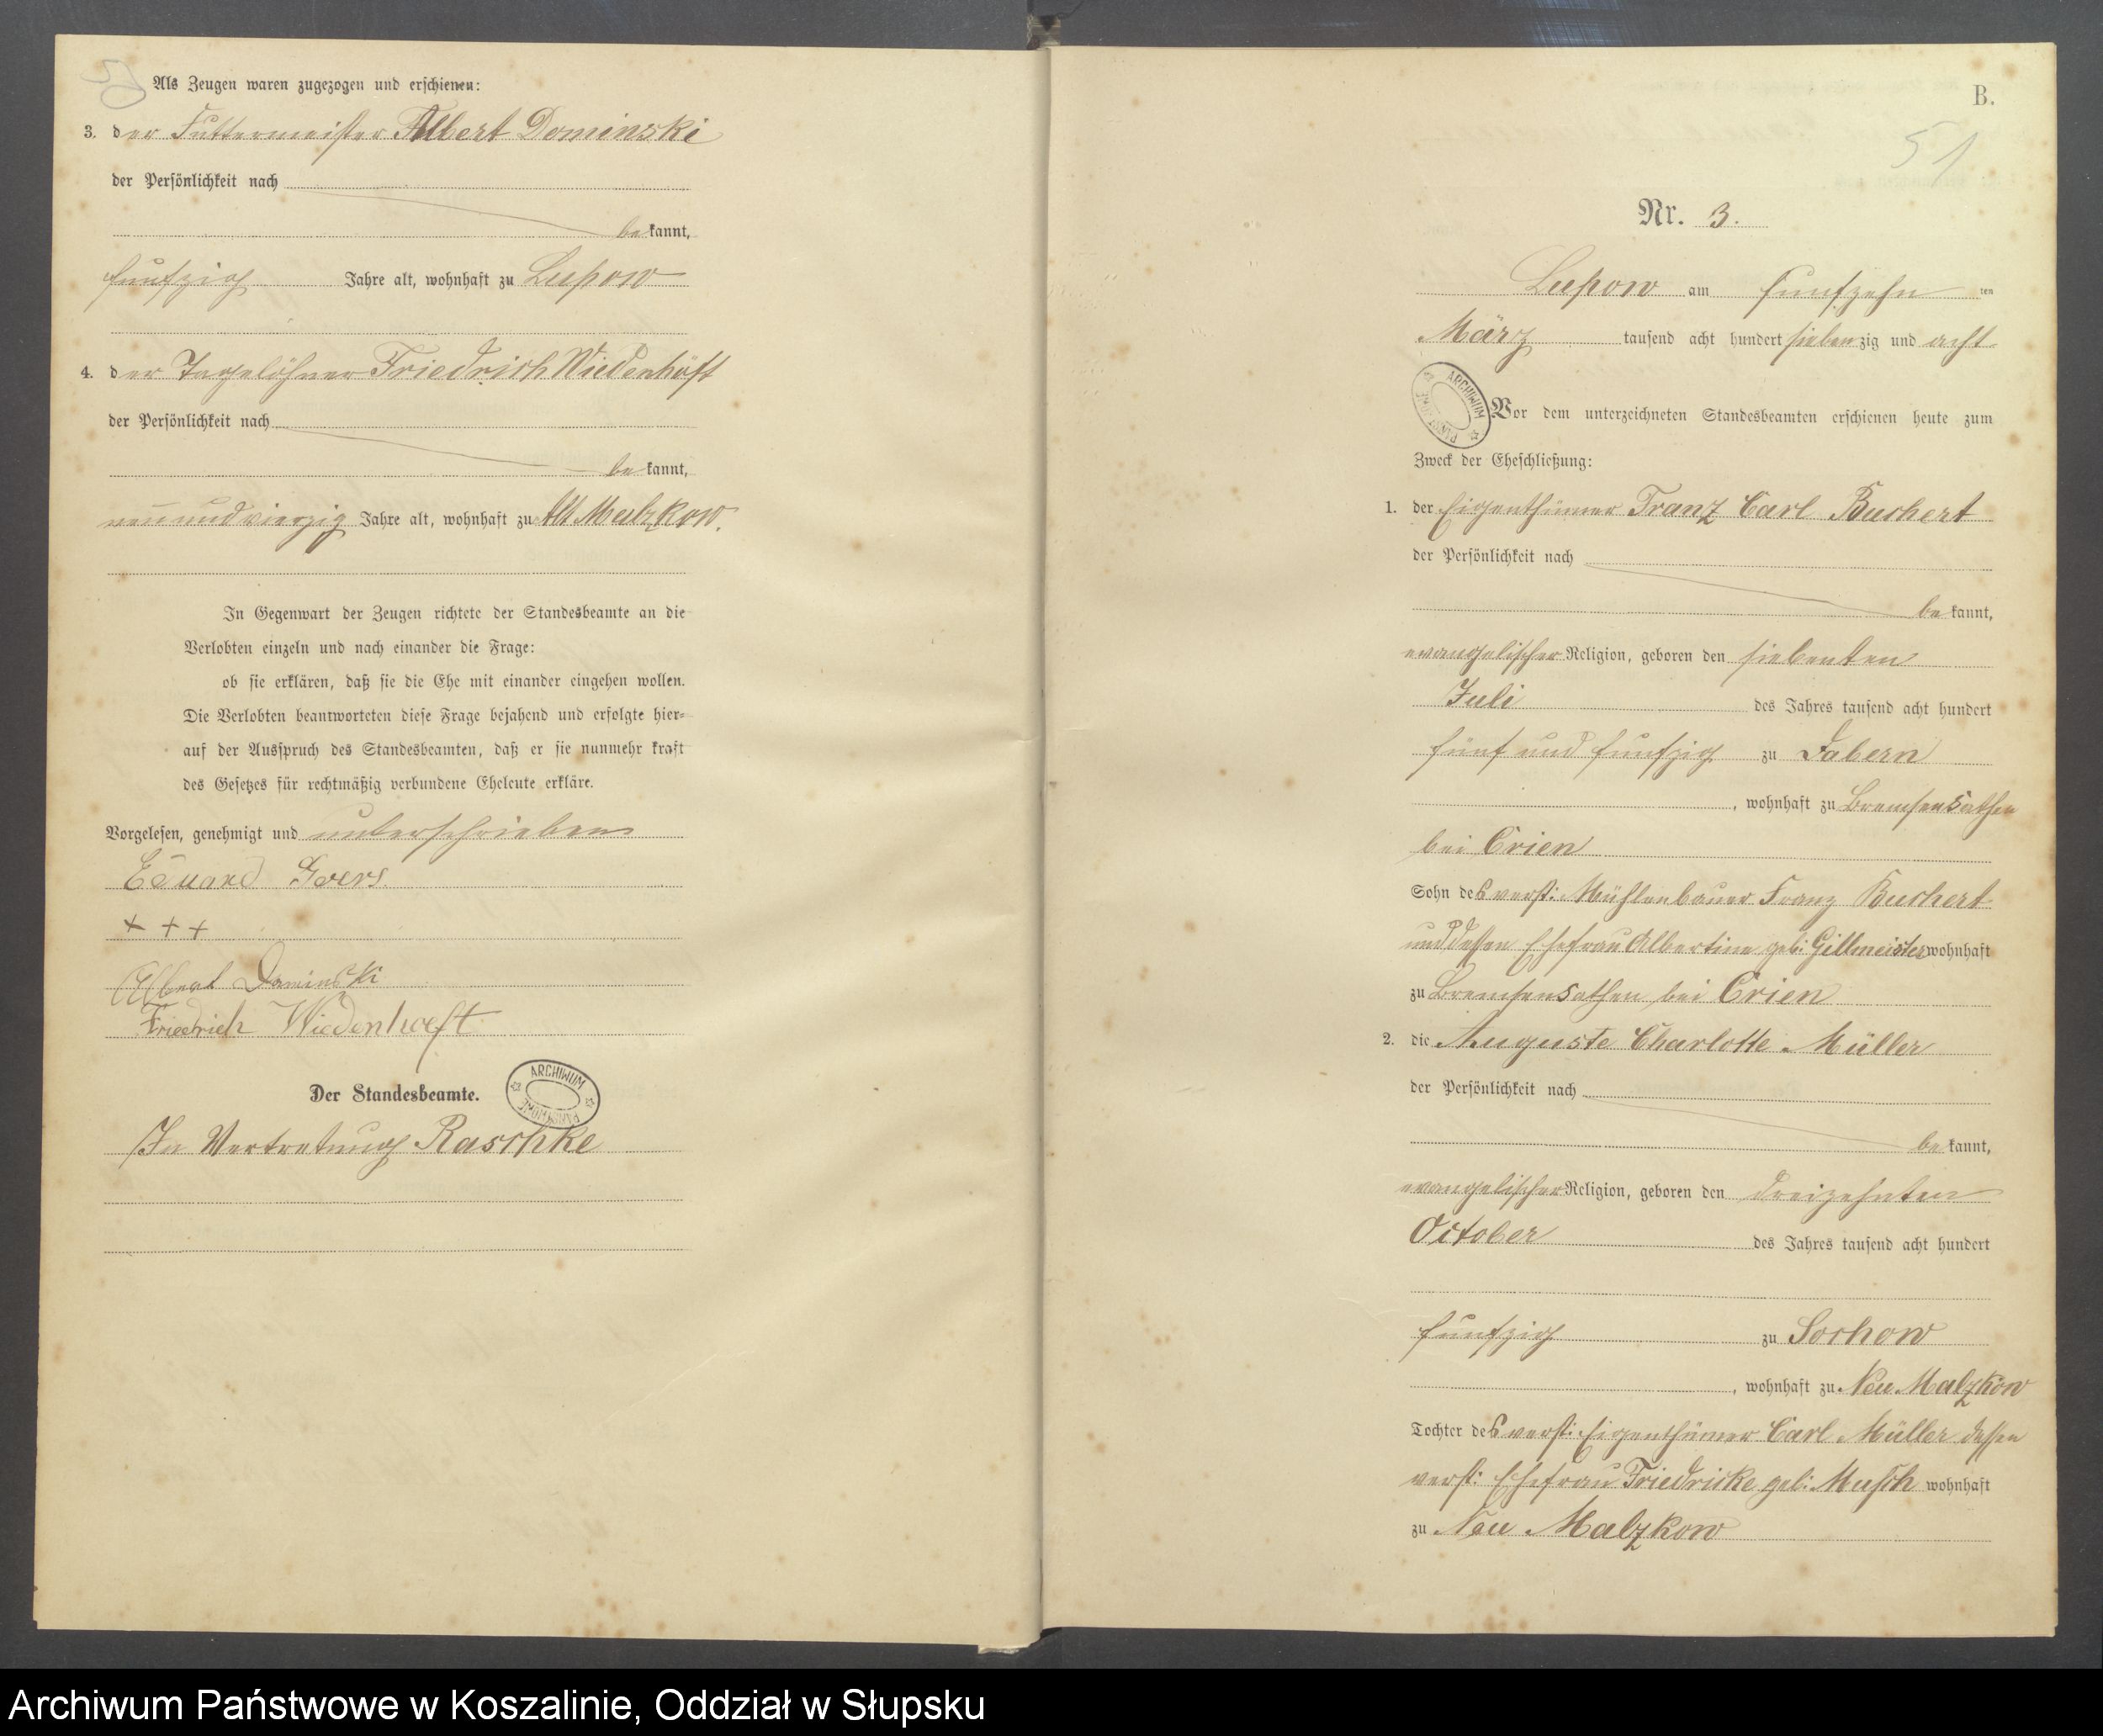 Als Zeugen waren zugezogen und erschienen:
3. der Futtermeister Albert Dominski
der Persönlichkeit nach
bekannt,
funfzig Jahre alt, wohnhaft zu Lupow
4. der Tagelöhner Friedrich Wiedenhöft
der Persönlichkeit nach
bekannt,
neunundvierzig Jahre alt, wohnhaft zu Alt Malzkow.
In Gegenwart der Zeugen richtete der Standesbeamte an die
Verlobten einzeln und nach einander die Frage:
ob sie erklären, daß sie die Ehe mit einander eingehen wollen.
Die Verlobten beantworteten diese Frage bejahend und erfolgte hier-
auf der Ausspruch des Standesbeamten, daß er sie nunmehr kraft
des Gesetzes für rechtmäßig verbundene Eheleute erkläre.
Vorgelesen, genehmigt und unterschrieben
Eduard Goers.
+ + +
Albert Dominski
Friedrich Wiedenhoeft
Der Standesbeamte.
ARCHIWUM PAŃSTWOWE
In Vertretung Raschke
B.
51
Nr. 3.
Lupow am funfzehn ten
März tausend acht hundert siebenzig und acht
ARCHIWUM PAŃSTWOWE
Vor dem unterzeichneten Standesbeamten erschienen heute zum
Zweck der Eheschließung:
1. der Eigenthümer Franz Carl Buchert
der Persönlichkeit nach
bekannt,
evangelischer Religion, geboren den siebenten
Juli des Jahres tausend acht hundert
fünf und funfzig zu Dabern
, wohnhaft zu
bei Crien
Sohn des verst: Mühlenbauer Franz Buchert
und dessen Ehefrau Albertine geb: Gillmeister wohnhaft
zu bei Crien
2. die Auguste Charlotte Müller
der Persönlichkeit nach
bekannt,
evangelischer Religion, geboren den dreizehnten
October des Jahres tausend acht hundert
funfzig zu Sochow
, wohnhaft zu Neu Malzkow
Tochter des verst: Eigenthümer Carl Müller dessen
verst: Ehefrau Friedricke geb: wohnhaft
zu Neu Malzkow
Archiwum Państwowe w Koszalinie, Oddział w Słupsku